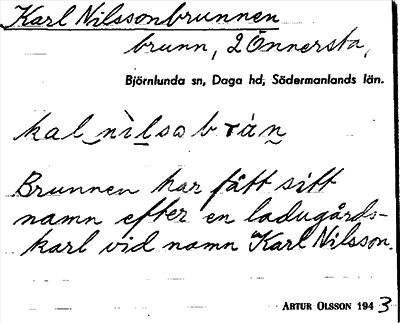 Karl Nilssonbrunnen
brunn, 2 Önnersta,
Björnlunda sn, Daga hd, Södermanlands län.
Brunnen har fått sitt
namn efter en ladugårds-
karl vid namn Karl Nilsson.
ARTUR OLSSON 1943